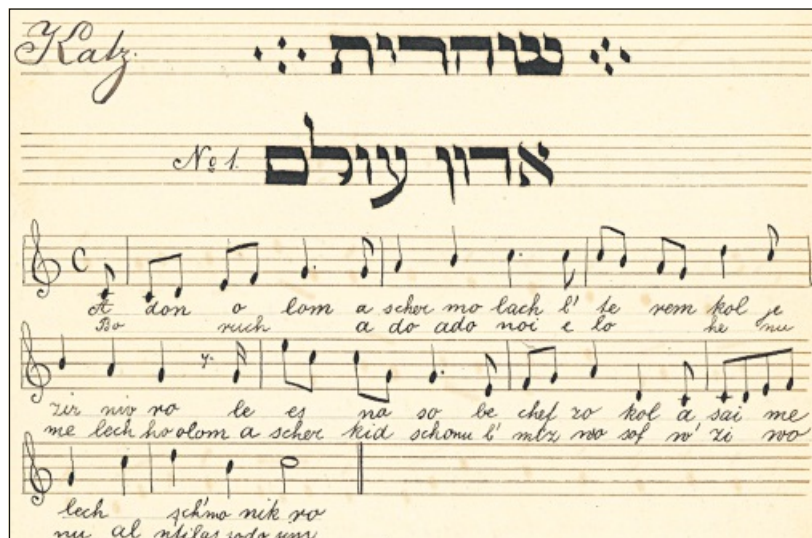 Katz. שחרית
No 1. אדון עולם
A don o lom a scher mo lach l' te rem kol je
Bo ruch a do ado noi e lo he nu
zir niv ro le es na so be chef zo kol a sai me
me lech ho olom a scher kid schonu l' mtz wo sof w' zi wo
lech schmo nik ro
nu al